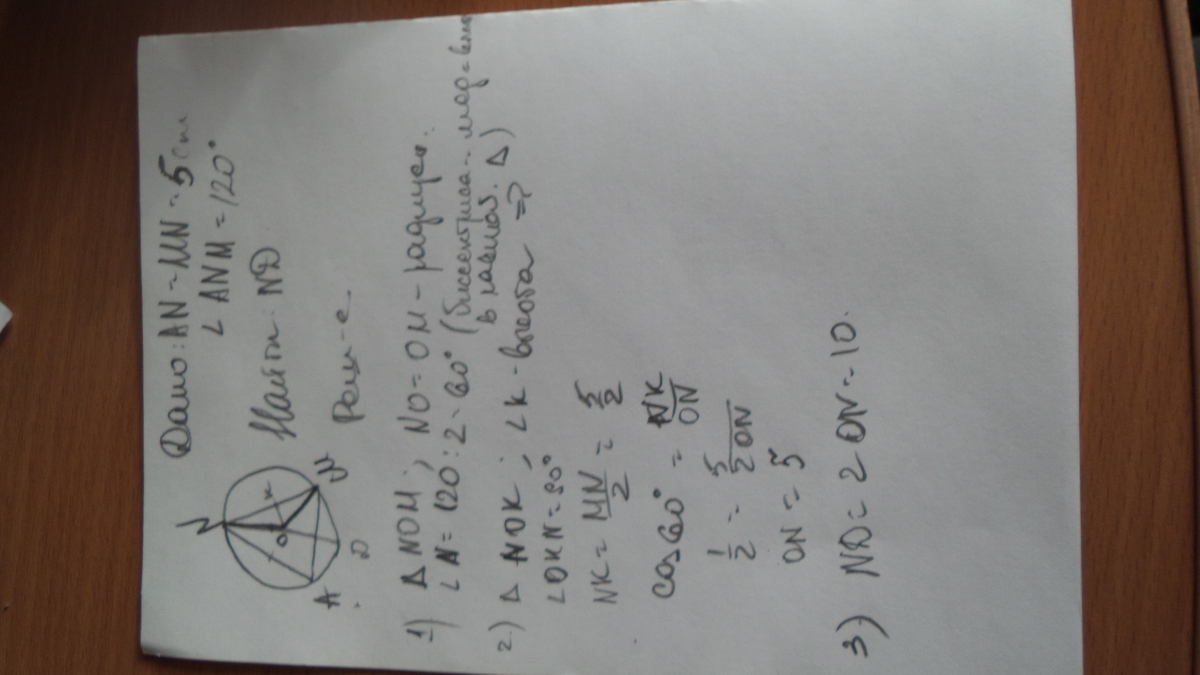 Дано: AN = MN = 5 см
∠ ANM = 120°
Найти: ND
Реш-е.
N
K
O
M
A
D
1) Δ NOM; NO = OM - радиусы.
∠ N = 120 : 2 = 60° (биссектриса = мед =
в равноб. Δ)
2) Δ NOK; ∠K - высота ⇒
∠OKN = 90°
NK = MN/2 = 5/2
cos 60° = NK/ON
1/2 = 5/2ON
ON = 5
3) ND = 2 ON = 10.